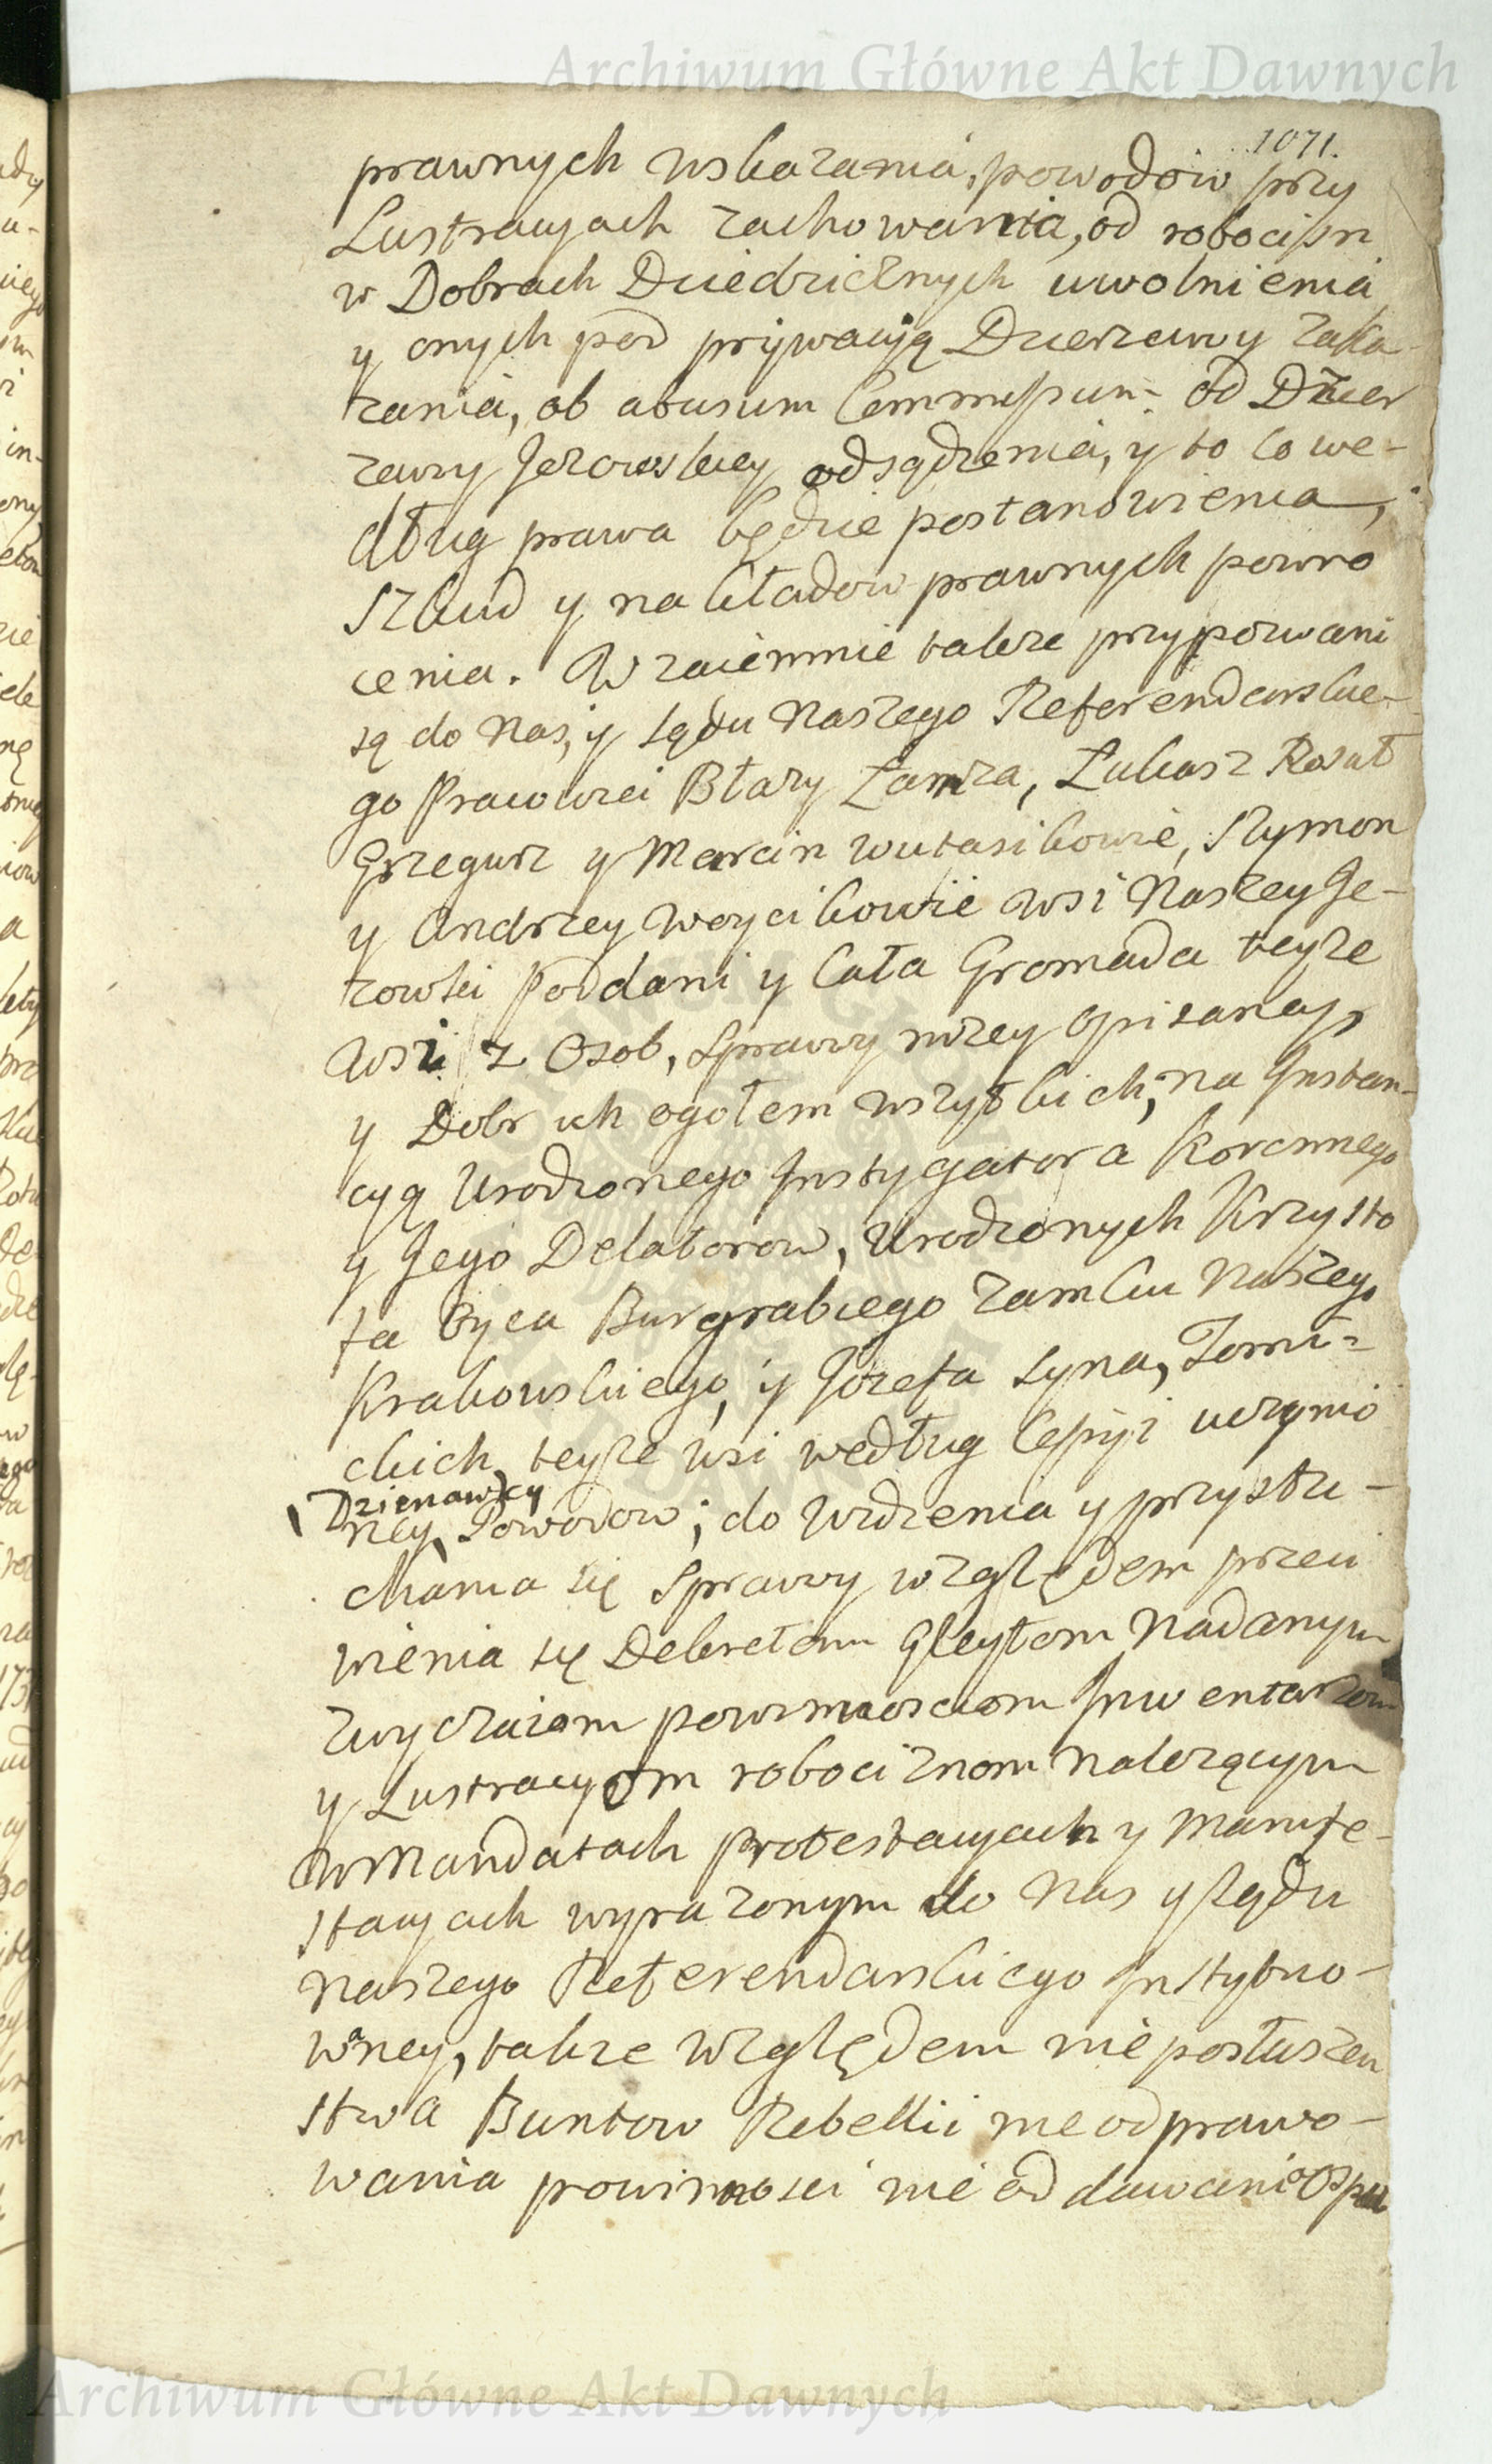 Archiwum Główne Akt Dawnych
1071.
prawnych wskazania, powodow przy
Lustracyach zachowania, od robocizn
w Dobrach Dziedzicznych uwolnienia
y onych pod prywacyą Dzierzawy zaka-
zania, ob abusum Commissum od Dzier
zawy Jezowskiey odsądzenia, y to co we-
dług prawa będzie postanowienia,
Szkud y nakładow prawnych powro
cenia. Wzaiemnie takze przypozwani
są do Nas, y sądu Naszego Referendarskie-
go Pracowici Błazy Łamza, Łukasz Kosut
Grzegurz y Marcin Wutasikowie, Szymon
y Andrzey Woycikowie wsi Naszey Je-
zowski Poddani y Cała Gromada teyze
wsi z Osob, sprawy nizey opisaney,
y Dobr ich ogołem wszytkich, na Instan-
cyą Urodzonego Instygatora Koronnego
y Jego Delatorow, Urodzonych Krzysto
fa Oyca Burgrabiego zamku Naszego
Krakowskiego, y Jozefa syna, Tomi-
ckich teyze wsi według Cessyi uczynio
Dzierzawcy
ney Powodow; do widzenia y przysłu-
chania się sprawy względem przeci
wienia się Dekretom Gleytom Nadanym
zwyczaiom powinnosciom Inwentarzom
y Lustracyom robociznom Nalezącym
w Mandatach protestacyach y Manife-
stacyach wyrazonym do Nas y sądu
Naszego Referendarskiego Instytuo-
waney, takze względem nieposłuszen
stwa Buntow Rebellii nieodprawo-
wania powinnosci nie oddawania Osp
Archiwum Główne Akt Dawnych